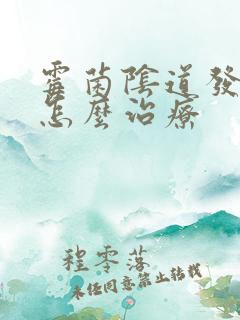 霉菌陰道發
怎麼治療
程零落
未任同意禁止转载